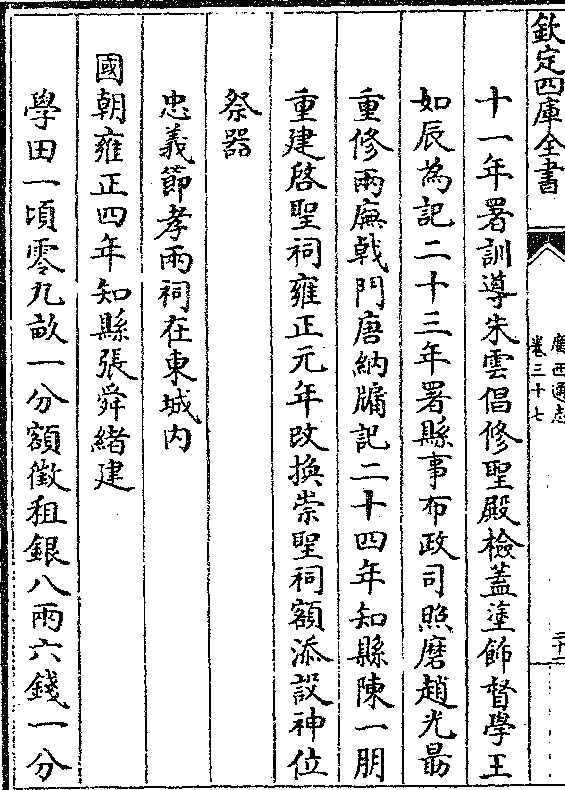 欽定四庫全書
廣西通志
卷三十七
十一年署訓導朱雲倡修聖殿檢蓋塗飾督學王
如辰為記二十三年署縣事布政司照磨趙光朂
重修兩廡戟門唐納牖記二十四年知縣陳一朋
重建啓聖祠雍正元年改換崇聖祠額添設神位
祭器
忠義節孝兩祠在東城内
國朝雍正四年知縣張舜緒建
學田一頃零九畝一分額徵租銀八兩六錢一分